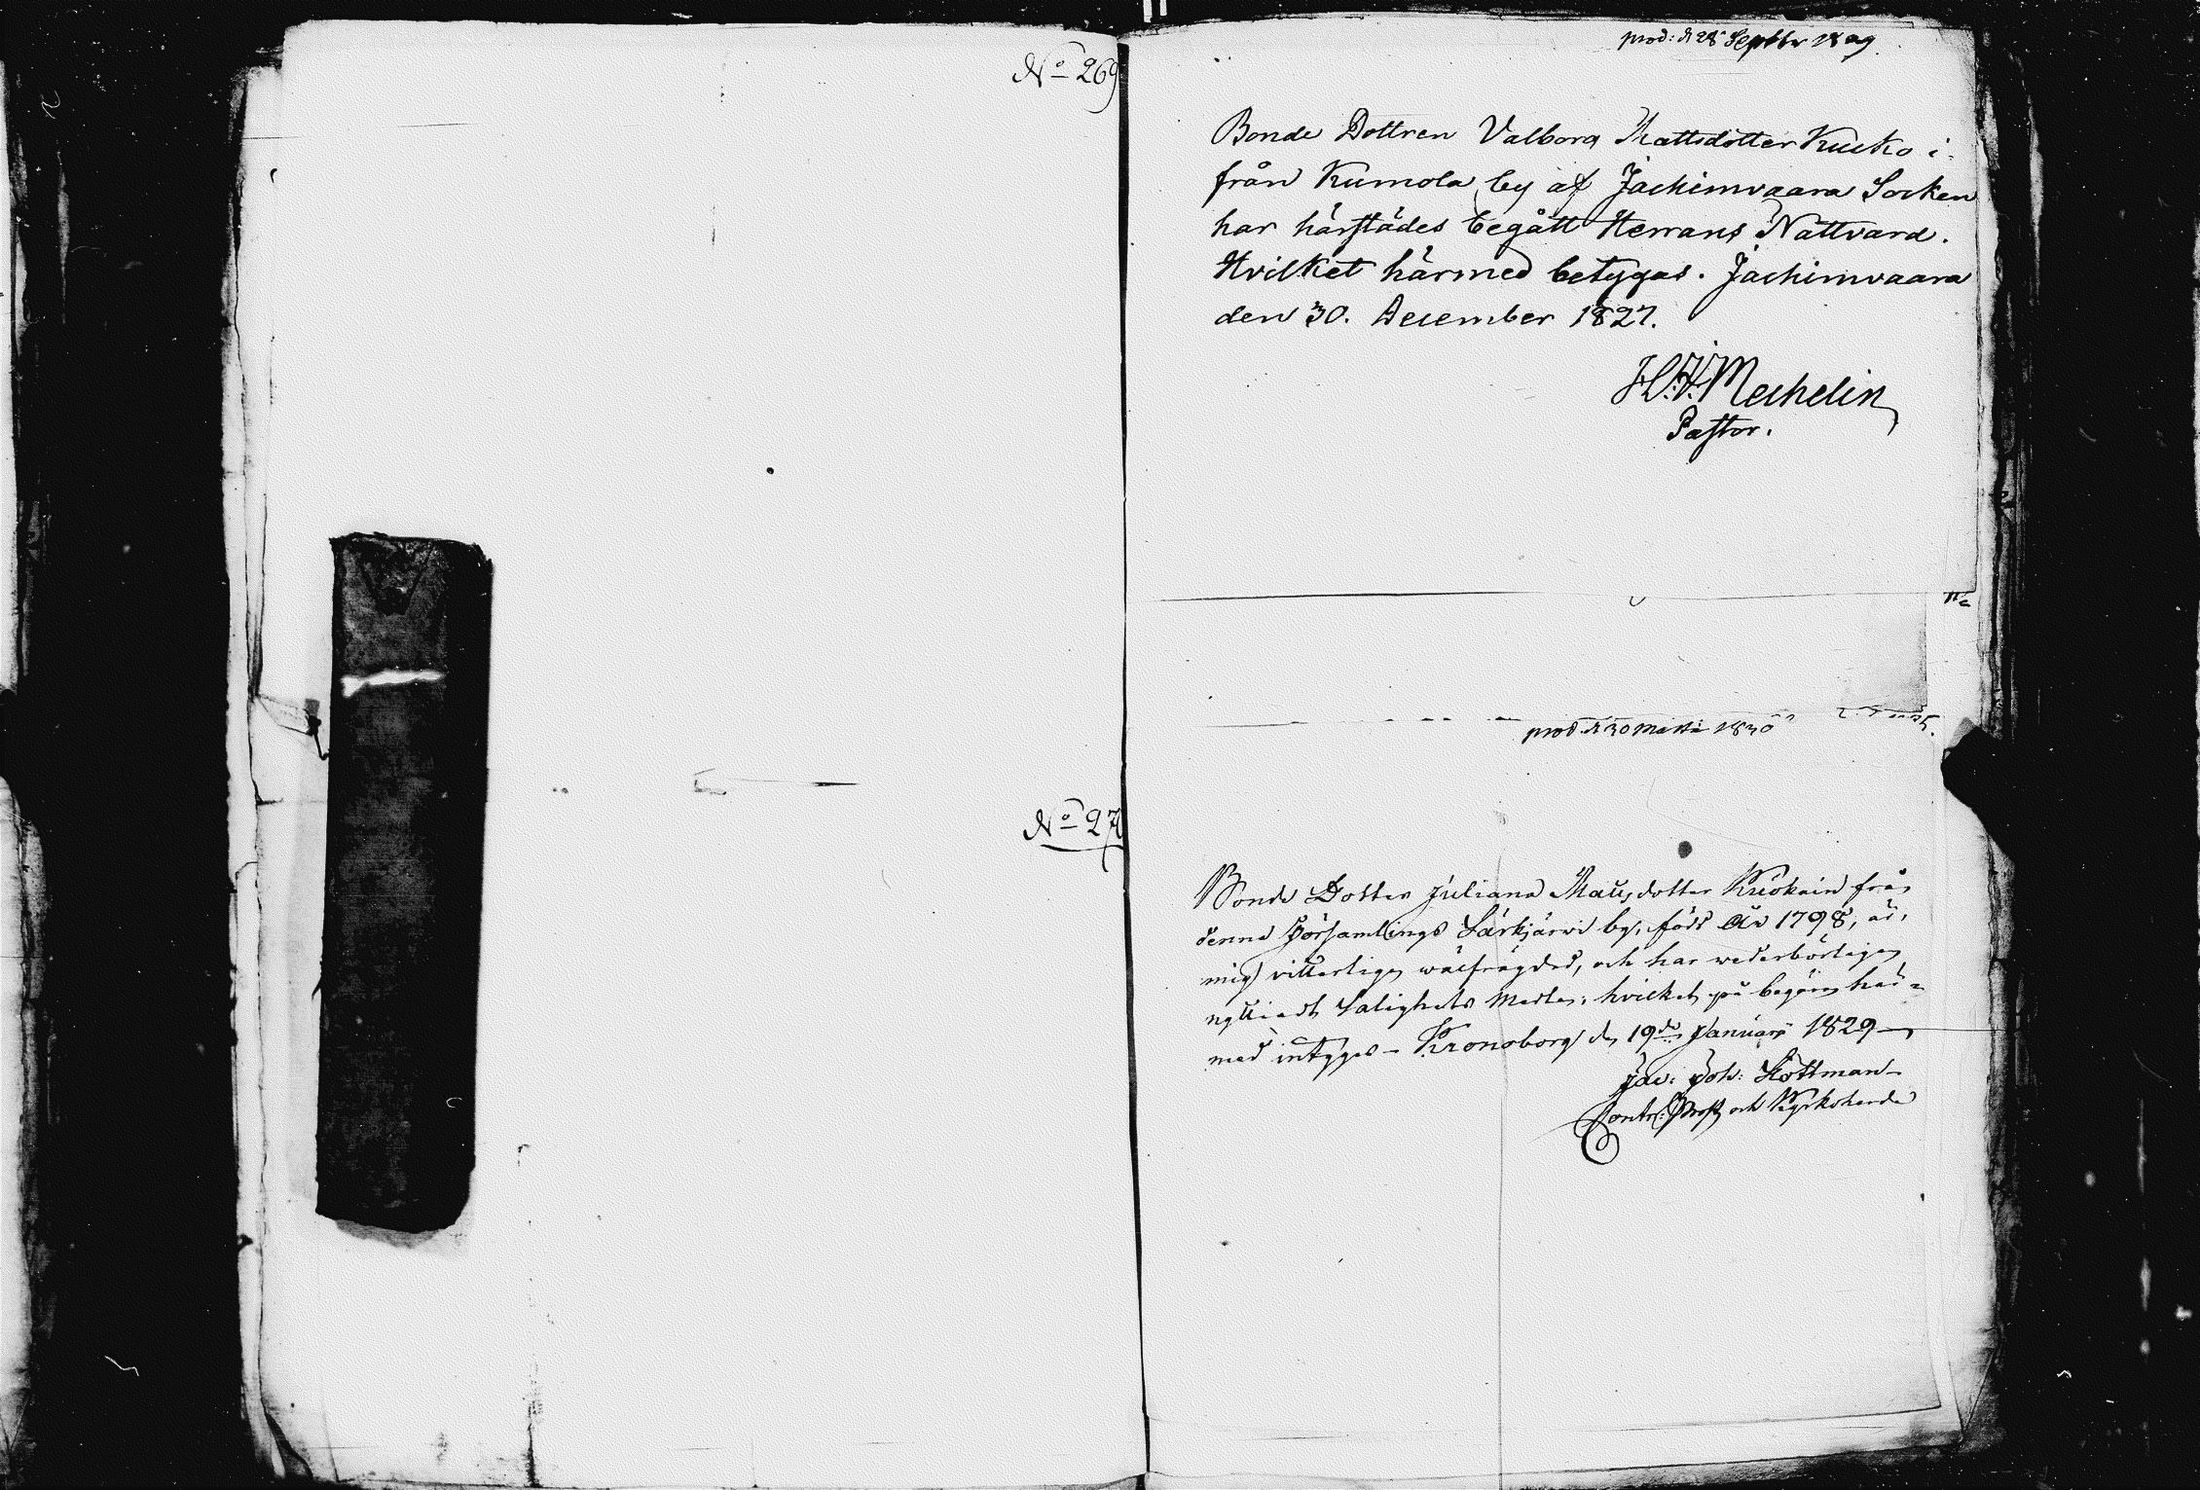 No 269
prod: d 28 Septbr 1829
Bonde Dottren Valborg Mattsdotter Kucko i-
från Kumola by af Jachimvaara Socken
har härstädes begått Herrans Nattvard.
Hvilket härmed betygas. Jachimvaara
den 30. December 1827.
H.H. Mechelin
Pastor.
prod. d 30 Martii 1830
No 270
Bonde Dotter Juliana Mattsdotter Kuokain från
denna Församlings Särkjärvi by, född År 1798, är,
mig vitterligen wälfrägdad, och har wederbörligen
nyttjadt Salighets Medlen; hvilket på begäran här-
med intygas – Kronoborg d. 19de Januarii 1829 –
Jac: Joh: Höttman –
Contr: Prost och Kyrkoherde